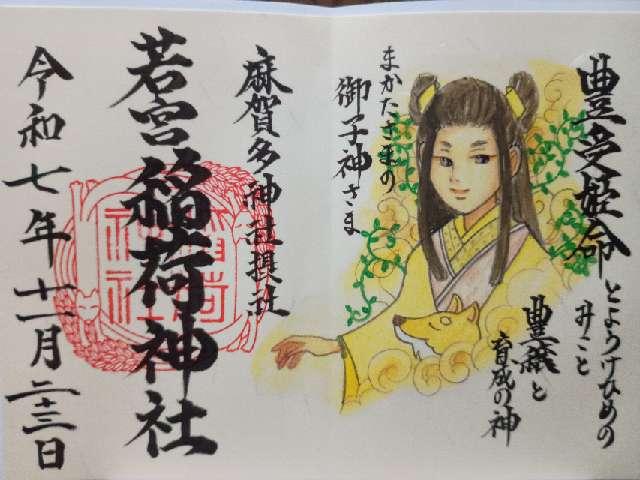 豊受姫命
とようけひめの
みこと
豊饒と
育成の神
まかたさまの
御子神さま
麻賀多神社摂社
若宮稲荷神社
令和七年十一月二十三日